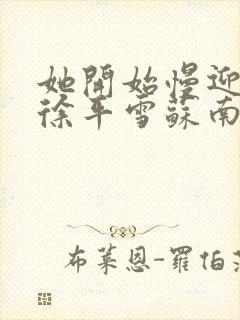 她開始慢迎
徐平雪蘇南
布萊恩-羅伯